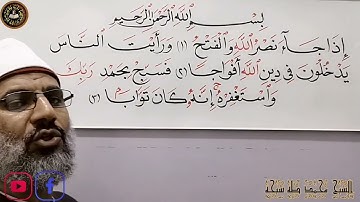 بسم الله الرحمن الرحيم
إِذَا جَآءَ نَصْرُ اللَّهِ وَالْفَتْحُ (١) وَرَأَيْتَ النَّاسَ
يَدْخُلُونَ فِي دِينِ اللَّهِ أَفْوَاجًا (٢) فَسَبِّحْ بِحَمْدِ رَبِّكَ
وَاسْتَغْفِرْهُ إِنَّهُ كَانَ تَوَّابًا (٣)
الشيخ محمد طه شحه